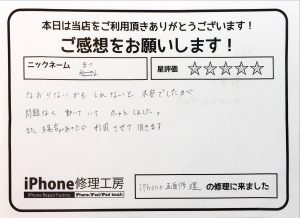 本日は当店をご利用頂きありがとうございます！
ご感想をお願いします！
ニックネーム
星評価 ☆☆☆☆☆
なおらないかもしれないと 本当でしたが
問題なく 動いていて ホッとしました。
また 機会があったら 利用 させて 頂きます
iPhone修理工房
iPhone Repair Factory iPhone/iPad/iPod touch
iPhone画面修理 の修理に来ました